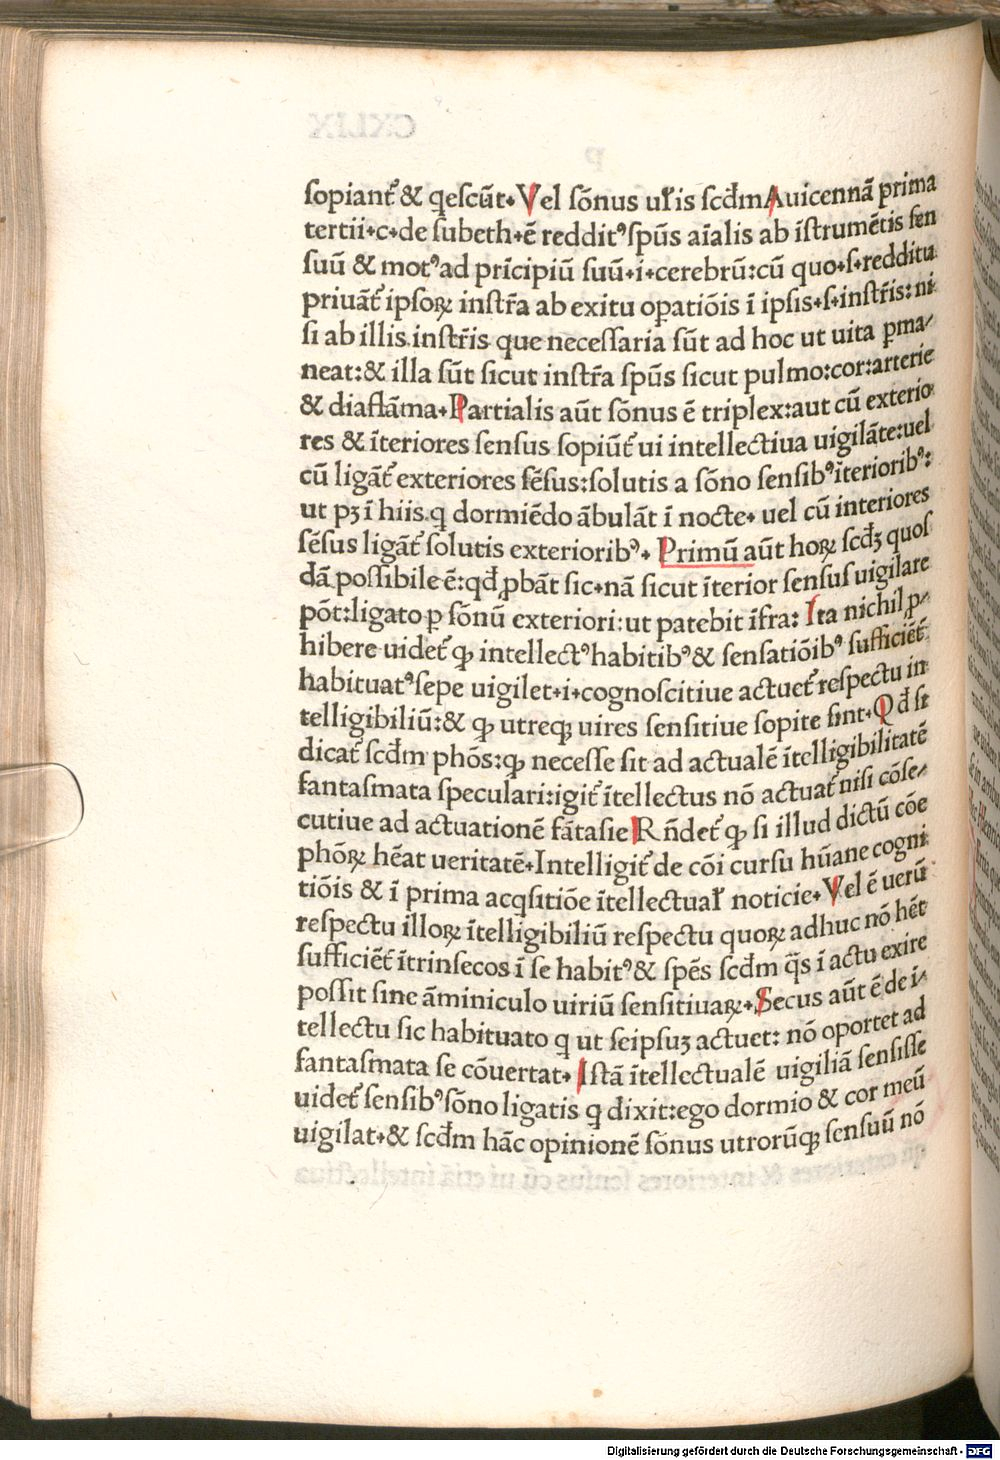 sopiant᷑ & qescūt. Vel sōnus uꝉis scd̄m Auicennā prima
tertii.c.de subeth.ē reddit᾿ spūs aīalis ab īstrumētis sen
suū & mot᾿ ad prīcipiū suū.i.cerebrū:cū quo.s.redditu
priuāt᷑ ipsoꝝ instr̄a ab exitu oꝑatiōis ī ipsis.s.instr̄is:ni
si ab illis instr̄is que necessaria sūt ad hoc ut uita ꝑma/
neat:& illa sūt sicut instr̄a spūs sicut pulmo:cor:arterie
& diaflāma. Partialis aūt sōnus ē triplex:aut cū exterio
res & īteriores sensus sopiūt᷑ ui intellectiua uigilāte:uel
cū ligāt᷑ exteriores sēsus:solutis a sōno sensib᾿ īteriorib᾿:
ut pꝫ ī hiis.q dormiēdo ābulāt ī nocte. uel cū interiores
sēsus ligāt᷑ solutis exteriorib᾿. Primū aūt hoꝝ scd̄ꝫ quos
dā possibile ē:qd̄ ꝓbāt sic.nā sicut īterior sensus uigilare
pōt:ligato ꝑ sōnū exteriori:ut patebit īfra: Ita nichil ꝓ/
hibere uidet᷑ ꝙ intellect᾿ habitib᾿ & sensatiōib᾿ sufficiēt᷑
habituat᾿ sepe uigilet.i.cognoscitiue actuet᷑ respectu in
telligibiliū:& ꝙ utreqꝫ uires sensitiue sopite sint. Qd̄ si
dicat᷑ scd̄m phōs:ꝙ necesse sit ad actualē ītelligibilitatē
fantasmata speculari:igit᷑ ītellectus nō actuat᷑ nisi cōse/
cutiue ad actuationē fātasie Rn̄det᷑ ꝙ si illud dictū cōe
phōꝝ hēat ueritatē. Intelligit᷑ de cōi cursu hūane cogni
tiōis & ī prima acqsitiōe ītellectuaꝉ noticie. Vel ē uerū
respectu illoꝝ ītelligibiliū respectu quoꝝ adhuc nō hēt
sufficiēt᷑ ītrinsecos ī se habit᾿ & spēs scd̄m q̄s ī actu exire
possit sine āminiculo uiriū sensitiuaꝝ. Secus aūt ē de ī/
tellectu sic habituato q ut seipsuꝫ actuet: nō oportet ad
fantasmata se cōuertat. Istā ītellectualē uigiliā sensisse
uidet᷑ sensib᾿ sōno ligatis q dixit:ego dormio & cor meū
uigilat.& scd̄m hāc opinionē sōnus utrorūqꝫ sensuū nō
Digitalisierung gefördert durch die Deutsche Forschungsgemeinschaft - DFG